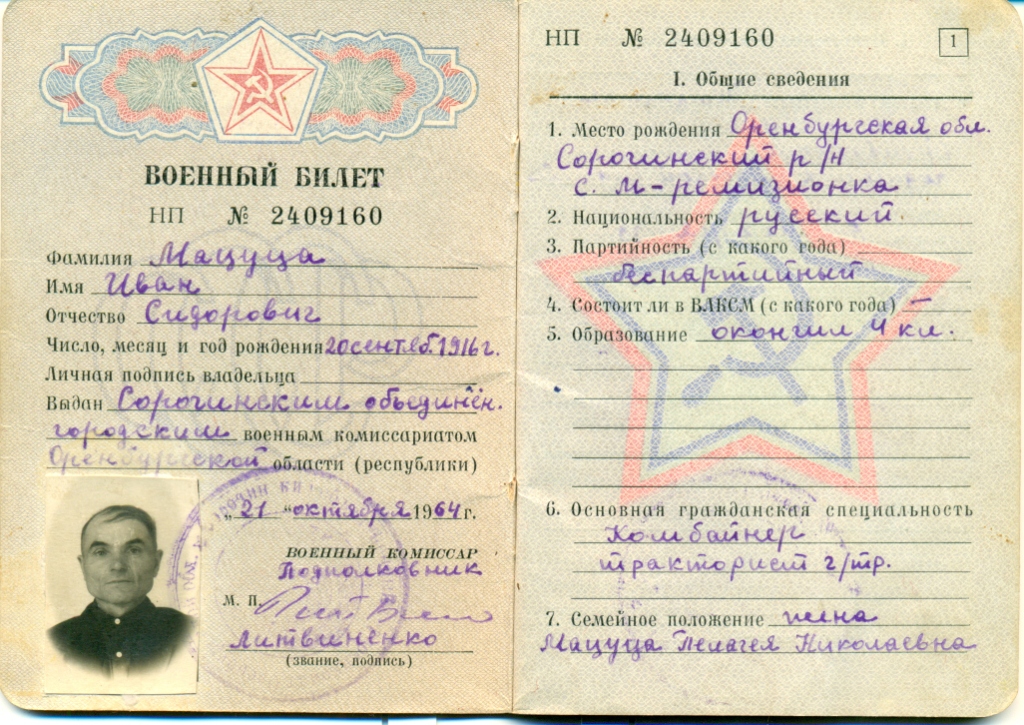 ВОЕННЫЙ БИЛЕТ
НП № 2409160
Фамилия Мацуца
Имя Иван
Отчество Сидорович
Число, месяц и год рождения 20 сентяб. 1916 г.
Личная подпись владельца
Выдан Сорочинским объединён.
городским военным комиссариатом
Оренбургской области (республики)
„21“ октября 1964 г.
ВОЕННЫЙ КОМИССАР
Подполковник
М. П.
Литвиненко
(звание, подпись)
НП № 2409160
1
I. Общие сведения
1. Место рождения Оренбургская обл.
Сорочинский р/н
с. М-ремизионка
2. Национальность русский
3. Партийность (с какого года)
беспартийный
4. Состоит ли в ВЛКСМ (с какого года) –
5. Образование окончил 4 кл.
6. Основная гражданская специальность
Комбайнер
тракторист г/тр.
7. Семейное положение жена
Мацуца Пелагея Николаевна